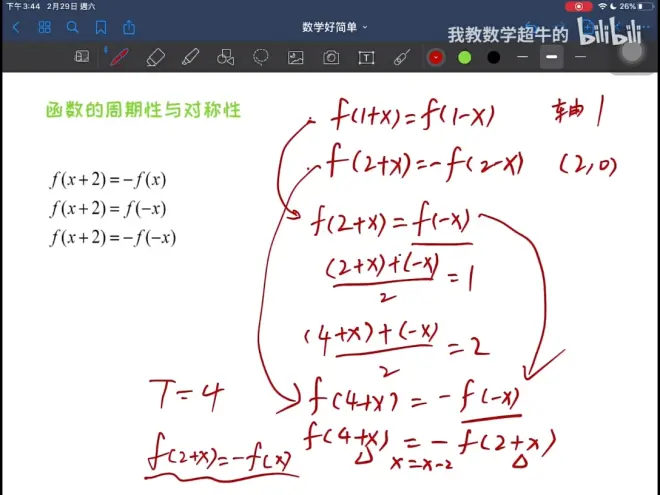 下午3:44 2月29日 週六
26%
数学好简单
我教数学超牛的 bilibili
函数的周期性与对称性
f(x+2)=-f(x)
f(x+2)=f(-x)
f(x+2)=-f(-x)
f(1+x)=f(1-x) 轴 1
f(2+x)=-f(2-x) (2,0)
f(2+x)=f(-x)
(2+x)+(-x)/2=1
(4+x)+(-x)/2=2
T=4
f(4+x)=-f(-x)
f(4+x)=-f(2+x)
x=x-2
f(2+x)=-f(x)